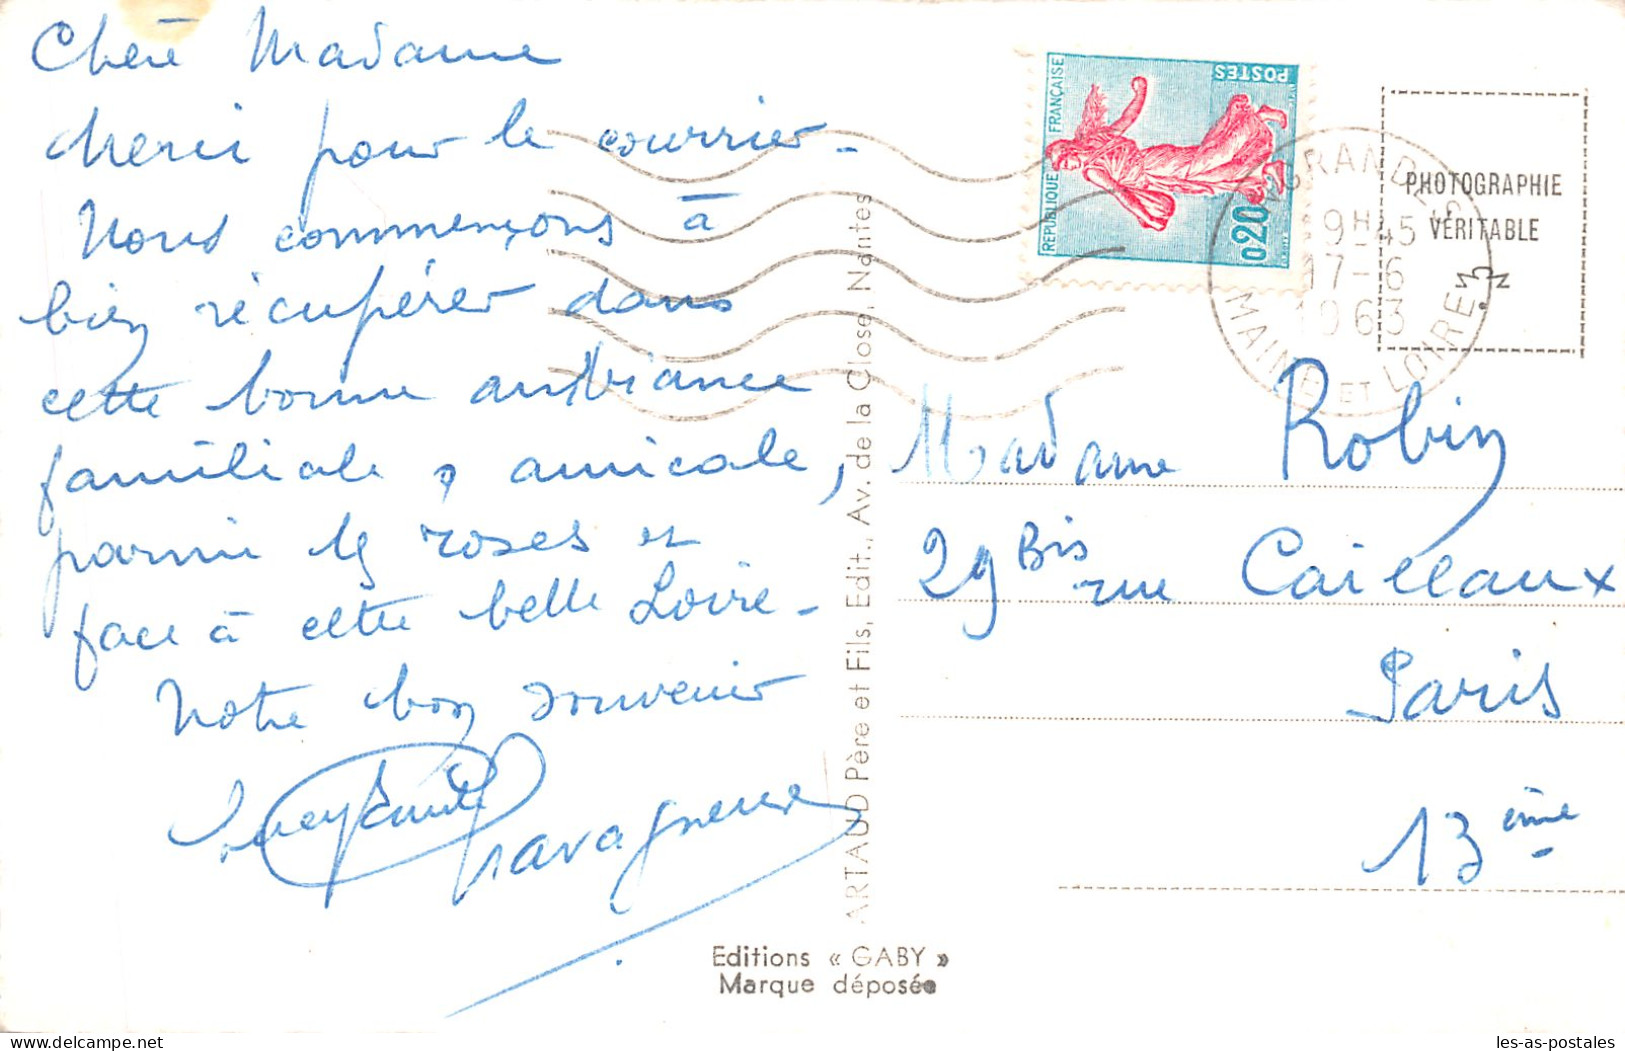 Chère Madame
Merci pour le courrier -
Nous commençons à
bien récupérer dans
cette bonne ambiance
familiale & amicale,
parmi les roses et
face à cette belle Loire -
Notre bon souvenir
REPUBLIQUE FRANÇAISE
POSTES
0,20
INGRANDES
19H45
17-6
1963
MAINE ET LOIRE
PHOTOGRAPHIE
VÉRITABLE
Madame Robin
29 Bis rue Caillaux
Paris
13ème
ARTAUD Père et Fils, Edit., Av. de la Close, Nantes
Editions « GABY »
Marque déposée
les-as-postales